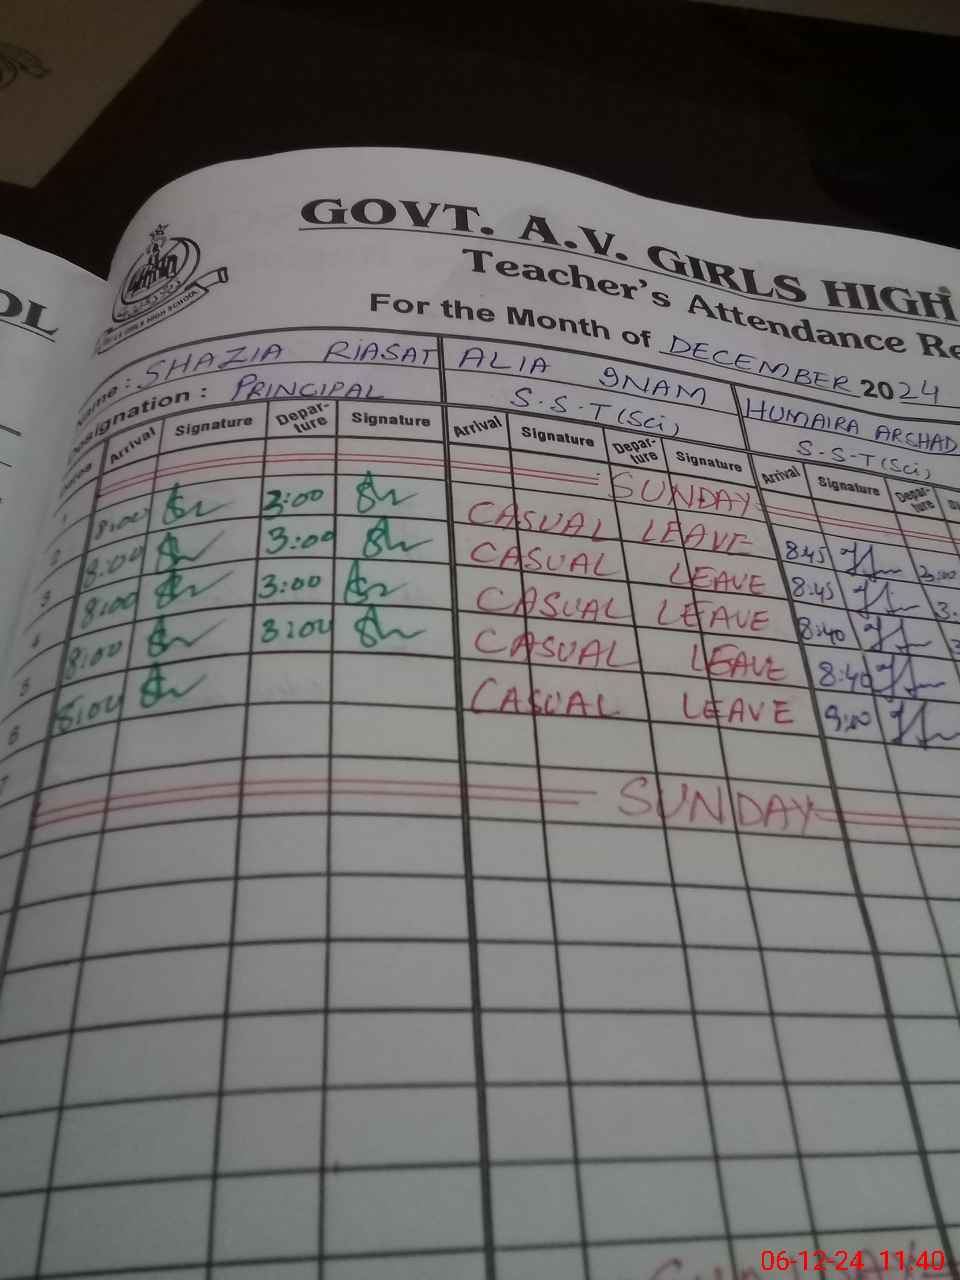 OL
GOVT. A.V. GIRLS HIGH
Teacher's Attendance Re
For the Month of DECEMBER 2024
GIRLS HIGH SCHOOL
Name: SHAZIA RIASAT ALIA INAM HUMAIRA ARSHAD
Designation: PRINCIPAL S.S.T(Sci) S.S.T(Sci)
Arrival Signature Depar-ture Signature Arrival Signature Depar-ture Signature Arrival Signature Depar-ture
1 SUNDAY
2 8:00 3:00 CASUAL LEAVE 8:45 3:00
3 8:00 3:00 CASUAL LEAVE 8:45 3:
4 8:00 3:00 CASUAL LEAVE 8:40
5 8:00 3:00 CASUAL LEAVE 8:40
6 8:00 CASUAL LEAVE 9:00
7
SUNDAY
06-12-24 11:40